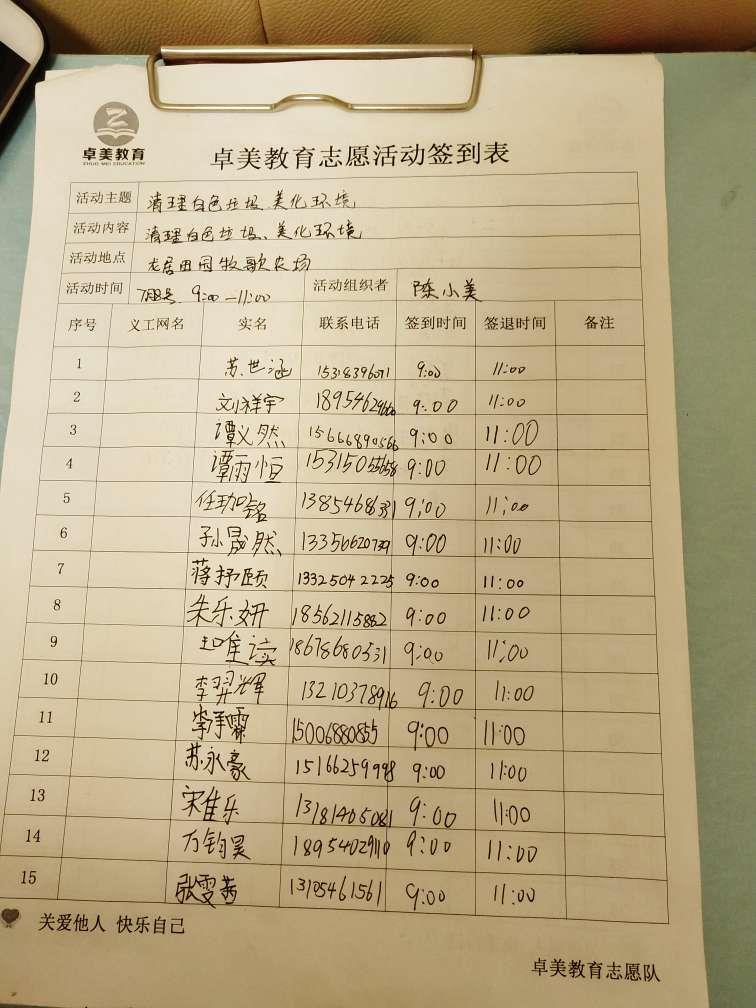 卓美教育
ZHUO MEI EDUCATION
卓美教育志愿活动签到表
活动主题 清理白色垃圾、美化环境
活动内容 清理白色垃圾、美化环境
活动地点 龙居田园牧歌农场
活动时间 9:00—11:00 活动组织者 陈小美
序号 义工网名 实名 联系电话 签到时间 签退时间 备注
1 苏世涵 15318396071 9:00 11:00
2 刘祥宇 9:00 11:00
3 谭义然 15666890566 9:00 11:00
4 谭雨恒 9:00 11:00
5 任珈铭 13854686331 9:00 11:00
6 孙晟然 13356620739 9:00 11:00
7 蒋抒颐 13325042225 9:00 11:00
8 朱乐妍 18562115862 9:00 11:00
9 18678680531 9:00 11:00
10 李羿辉 13210378916 9:00 11:00
11 15006880855 9:00 11:00
12 苏永豪 15166259998 9:00 11:00
13 宋隹乐 13181405081 9:00 11:00
14 万钧昊 18954029110 9:00 11:00
15 张雯茜 13105461561 9:00 11:00
关爱他人 快乐自己
卓美教育志愿队